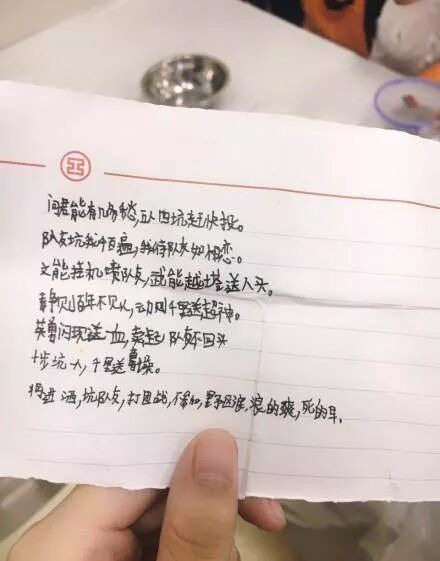 问君能有几多愁,五人四坑赶快投。
队友坑我千百遍,我待队友如初恋。
文能挂机喷队友,武能越塔送人头。
静则百年不见人,动则千里送超神。
英勇闪现送一血,卖起队友不回头
十步坑一人,千里送裹操。
将进酒,坑队友,打团战,不参加,野区浪,浪的爽,死的早.